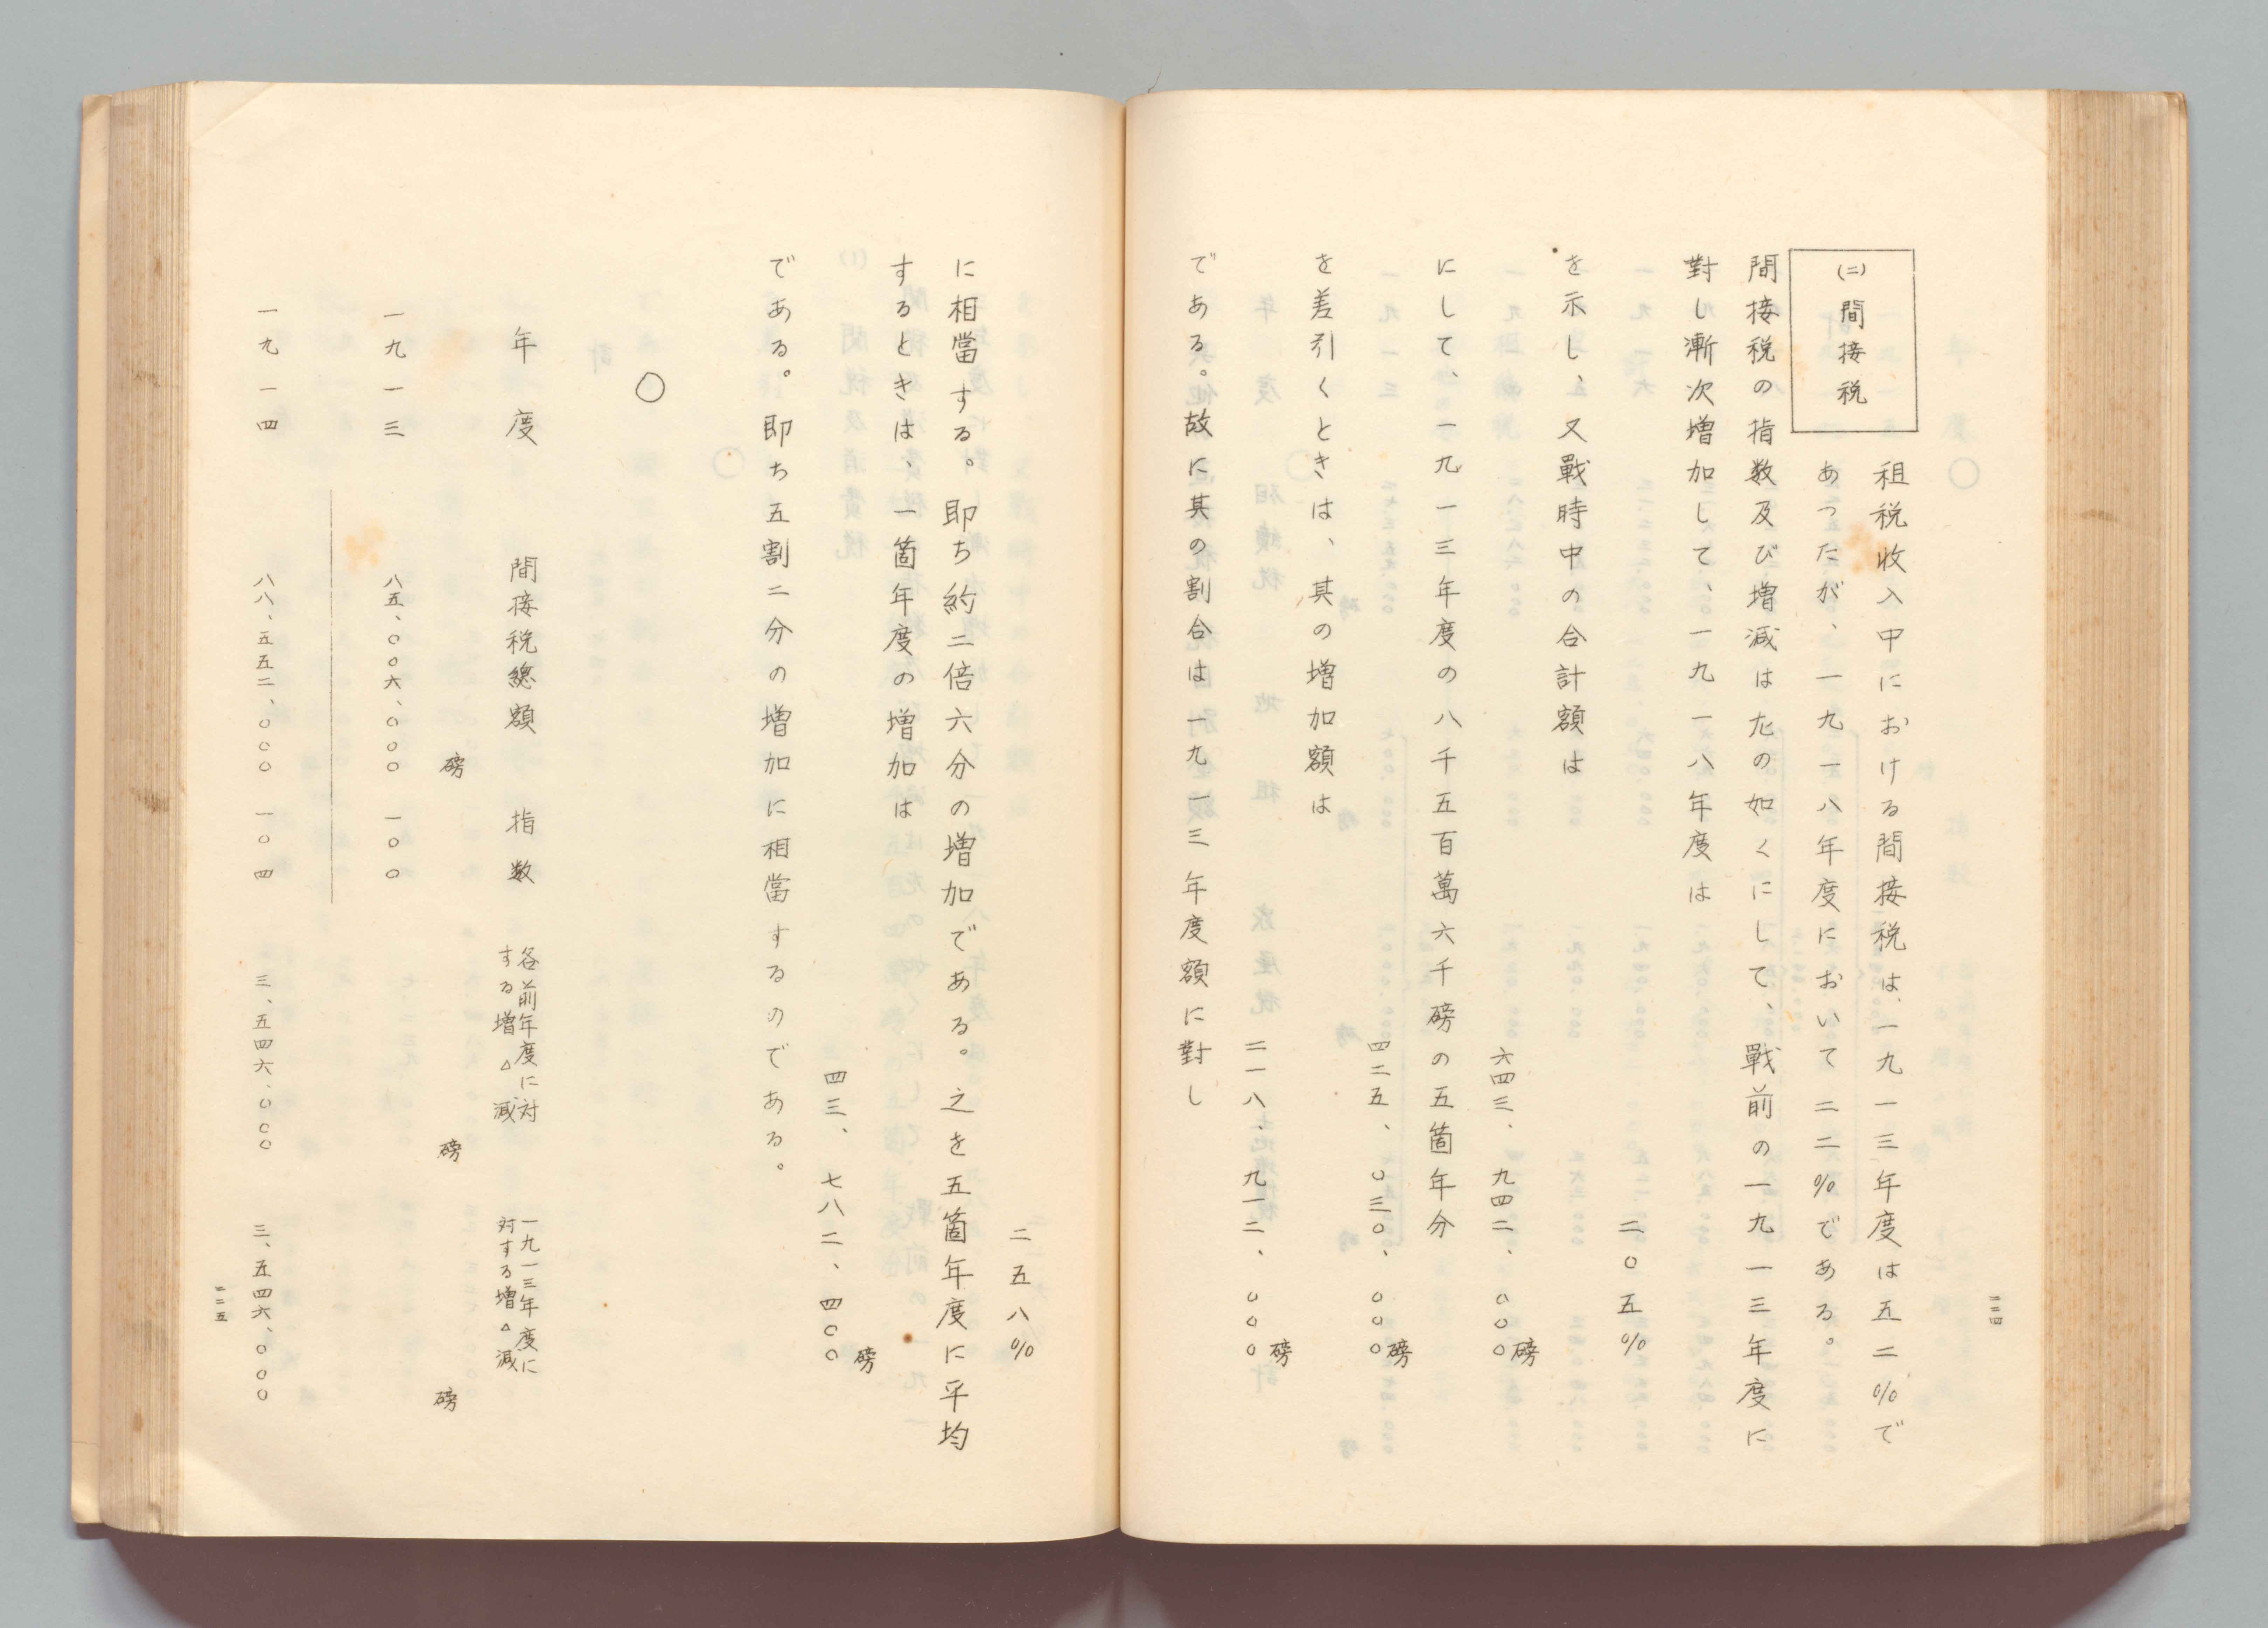 (二)間接税
租税収入中における間接税は、一九一三年度は五二%で
あつたが、一九一八年度において二二%である。
間接税の指数及び増減は左の如くにして、戰前の一九一三年度に
對し漸次増加して、一九一八年度は
二〇五%
を示し、又戰時中の合計額は
六四三、九四二、〇〇〇磅
にして、一九一三年度の八千五百萬六千磅の五箇年分
四二五、〇三〇、〇〇〇磅
を差引くときは、其の増加額は
二一八、九一二、〇〇〇磅
である。故に其の割合は一九一三年度額に對し
二二四
二五八%
に相當する。即ち約二倍六分の増加である。之を五箇年度に平均
するときは、一箇年度の増加は
四三、七八二、四〇〇磅
である。即ち五割二分の増加に相當するのである。
〇
年度 間接税總額 指数 各前年度に対する増△減 一九一三年度に対する増△減
磅 磅 磅
一九一三 八五、〇〇六、〇〇〇 一〇〇
一九一四 八八、五五二、〇〇〇 一〇四 三、五四六、〇〇〇 三、五四六、〇〇〇
二二五